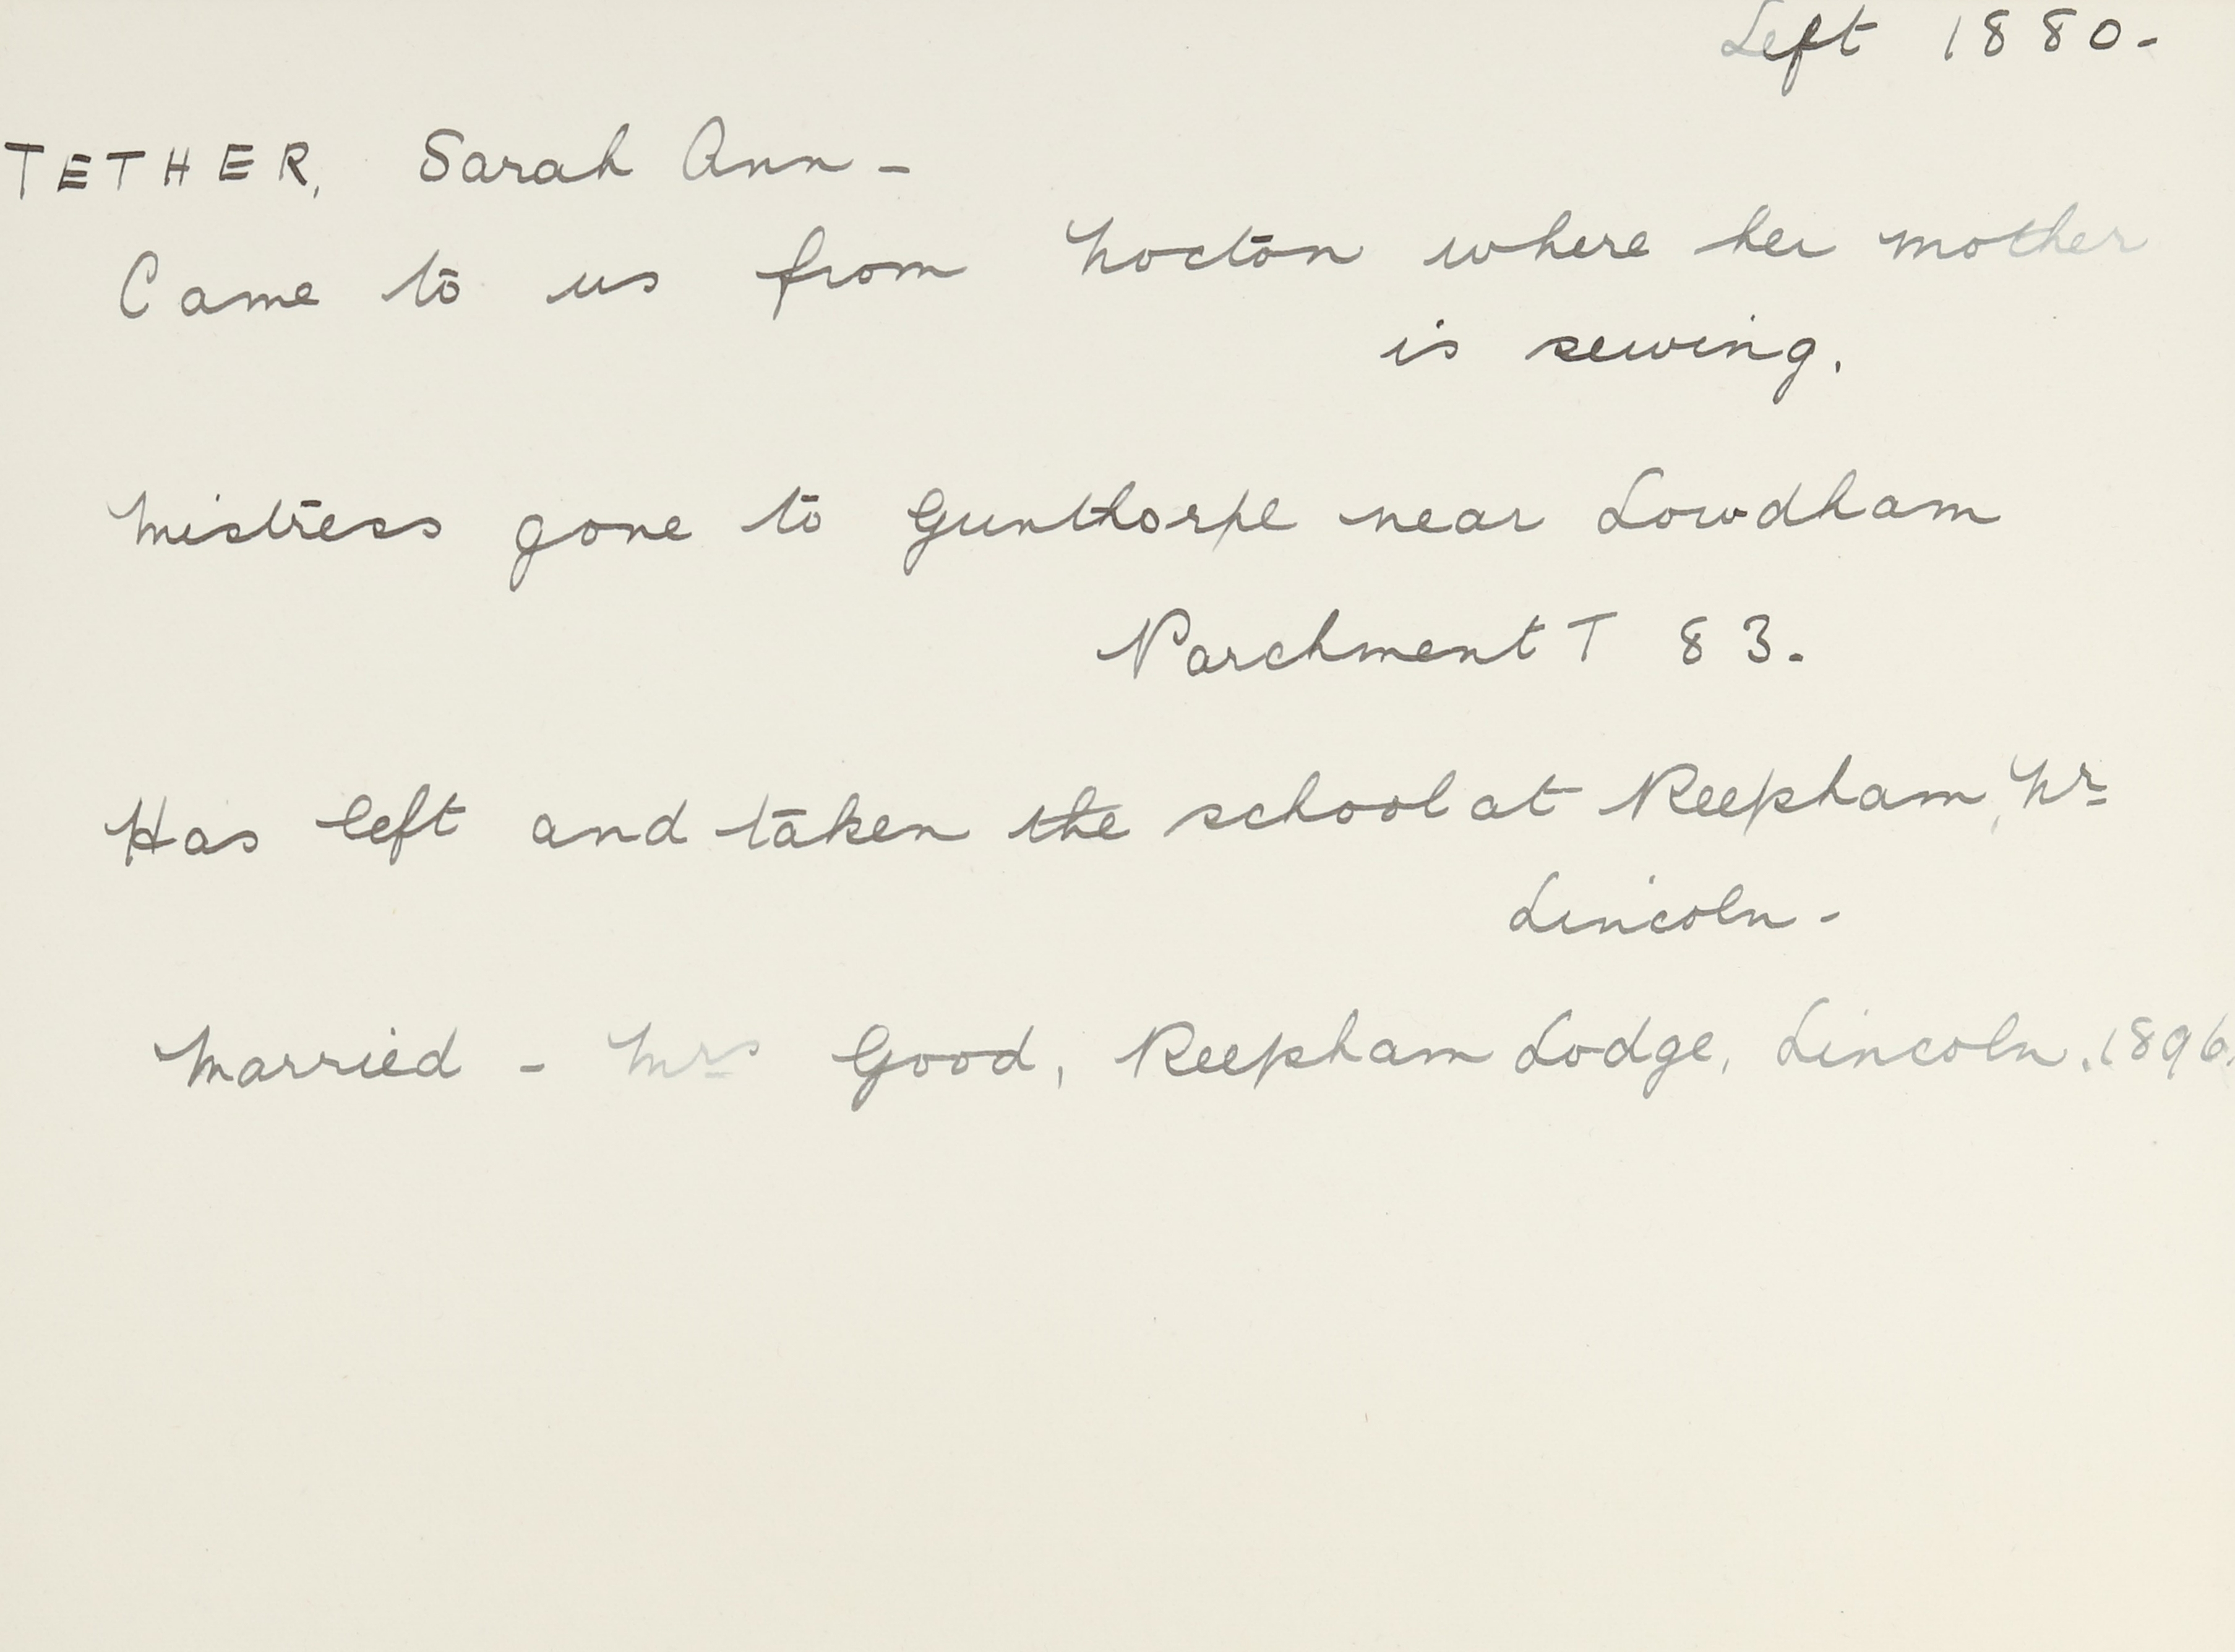 Left 1880-
TETHER, Sarah Ann -
Came to us from Nocton where her mother
is sewing.
Mistress gone to Gunthorpe near Lowdham
Parchment T 83.
Has left and taken the school at Reepham, Nr
Lincoln -
Married - Mrs Good, Reepham Lodge, Lincoln. 1896.